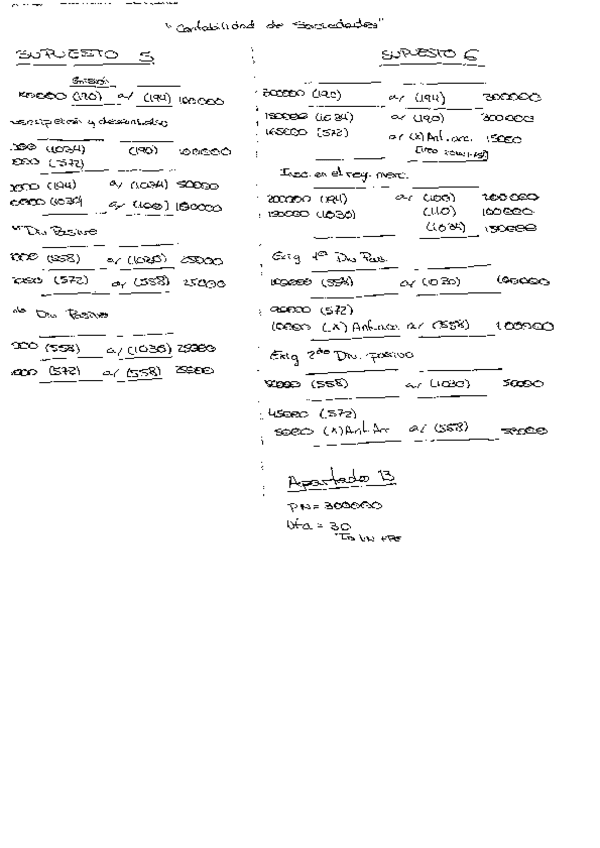 "Contabilidad de Sociedades"
SUPUESTO 5
Emisión
(190) a/ (194) 100000
suscripción y desembolso
(1034) (190) 100000
(572)
(194) a/ (1034) 50000
(1034) a/ (100) 100000
Div Pasivo
(558) a/ (1030) 25000
(572) a/ (558) 25000
Div Pasivo
(558) a/ (1030) 25000
(572) a/ (558) 25000
SUPUESTO 6
300000 (190) a/ (194) 300000
150000 (1034) a/ (190) 300000
165000 (572) a/ (X) Ant. acc. 15000
Insc. en el reg. merc.
(194) a/ (100) 200000
150000 (1030) (110) 100000
(1034) 150000
Exig 1º Div Pas.
100000 (558) a/ (1030) 100000
90000 (572)
10000 (X) Ant. acc. a/ (558) 100000
Exig 2do Div. pasivo
50000 (558) a/ (1030) 50000
45000 (572)
5000 (X) Ant. Acc a/ (558) 50000
Apartado B
PN = 300000
Vta = 30